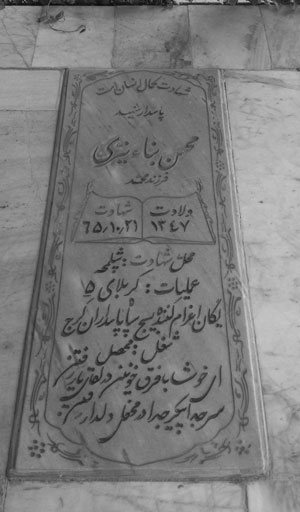 شهادت کمال انسان است
پاسدار شهید
محسن بناء نیری
فرزند محمد
ولادت
۱۳۴۷
شهادت
۶۵/۱۰/۲۱
محل شهادت: شلمچه
عملیات: کربلای ۵
یگان اعزام کننده بسیج سپاه پاسداران کرج
شغل: محصل
ای خوشا با فرق خونین در لقای یار رفتن
سر جدا پیکر جدا در محفل دلدار رفتن